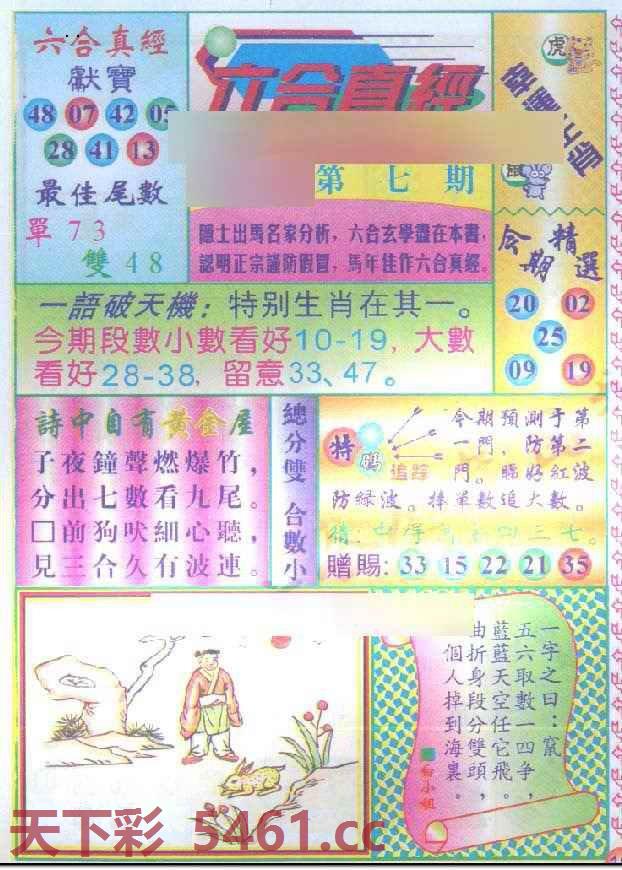 六合真經
獻寶
48 07 42 05
28 41 13
最佳尾數
單 7 3
雙 4 8
六合真經
第七期
隱士出馬名家分析，六合玄學盡在本書，
認明正宗謹防假冒，馬年佳作六合真經。
虎
鼠
今期精選
20 02
25
09 19
一語破天機：特别生肖在其一。
今期段數小數看好10-19，大數
看好28-38，留意33、47。
詩中自有黃金屋
子夜鐘聲燃爆竹，
分出七數看九尾。
□前狗吠細心聽，
見三合久有波連。
總分雙 合數小
特碼
追踪
今期預測于第
一門，防第二
門。睇好紅波
防緑波。捧單數追大數。
贈賜：33 15 22 21 35
一字之曰：竄
五六取數一四爭，
藍藍天空任它飛。
曲折身段分雙頭，
個人掉到海裏。
天下彩 5461.cc